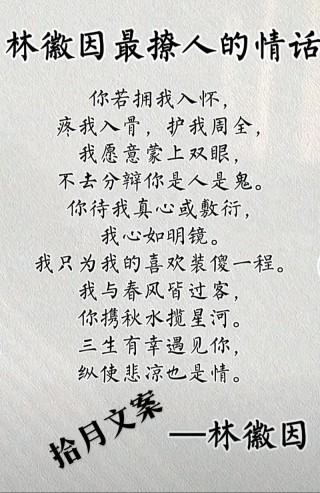 林徽因最撩人的情话
你若拥我入怀，
疼我入骨，护我周全，
我愿意蒙上双眼，
不去分辩你是人是鬼。
你待我真心或敷衍，
我心如明镜。
我只为我的喜欢装傻一程。
我与春风皆过客，
你携秋水揽星河。
三生有幸遇见你，
纵使悲凉也是情。
拾月文案
—林徽因